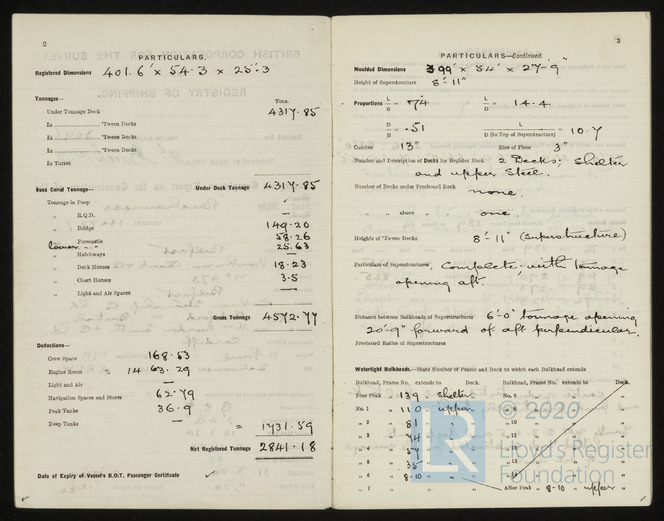 2
PARTICULARS.
Registered Dimensions 401.6' x 54.3 x 25.3
Tonnages—
Tons.
Under Tonnage Deck 4317.85
In 'Tween Decks
In 'Tween Decks
In 'Tween Decks
In Turret
Suez Canal Tonnage— Under Deck Tonnage 4317.85
Tonnage in Poop
„ R.Q.D. —
„ Bridge 149.20
„ Forecastle 58.26
25.63
„ Hatchways —
„ Deck Houses 18.23
„ Chart Houses 3.5
„ Light and Air Spaces —
Gross Tonnage 4572.77
Deductions—
Crew Space 168.53
Engine Room % 1463.29
Light and Air —
Navigation Spaces and Stores 62.79
Peak Tanks 36.9
Deep Tanks —
= 1731.59
Net Registered Tonnage 2841.18
Date of Expiry of Vessel's B.O.T. Passenger Certificate
3
PARTICULARS—Continued.
Moulded Dimensions 399' x 54' x 27'-9"
Height of Superstructure 8'-11"
Proportions L/B = 7.4 L/D = 14.4
D/B = .51 L/D (to Top of Superstructure) = 10.7
Camber 13" Rise of Floor 3"
Number and Description of Decks for Register Book 2 Decks; Shelter
and upper Steel.
Number of Decks under Freeboard Deck none.
„ „ above „ one.
Heights of 'Tween Decks 8'-11" (Superstructure)
Particulars of Superstructures, Complete, with tonnage
opening aft.
Distance between Bulkheads of Superstructures 6'-0" tonnage opening
20'-9" forward of aft perpendicular.
Freeboard Ratios of Superstructures
Watertight Bulkheads.—State Number of Frame and Deck to which each Bulkhead extends
Bulkhead, Frame No. extends to Deck. Bulkhead, Frame No. extends to Deck.
Fore Peak „ 139 Shelter No. 8
No. 1 „ 110 upper
„ 2 „ 81 „ „ 10
„ 3 „ 74 „
„ 4 „ 57 „ „ 12
„ 5 „ 35 „
„ 6 „ 8-10
„ 7 After Peak „ 8-10 „ upper
LR © 2020
Lloyd's Register
Foundation